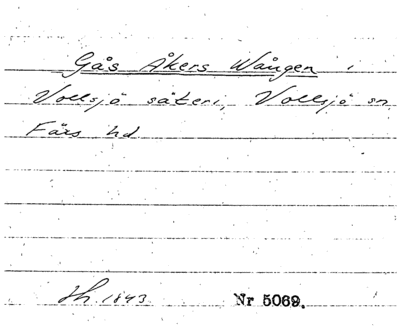 Gås Åkers Wången i
Vollsjö säteri, Vollsjö sn
Färs hd
Sh. 1843 Nr 5069.